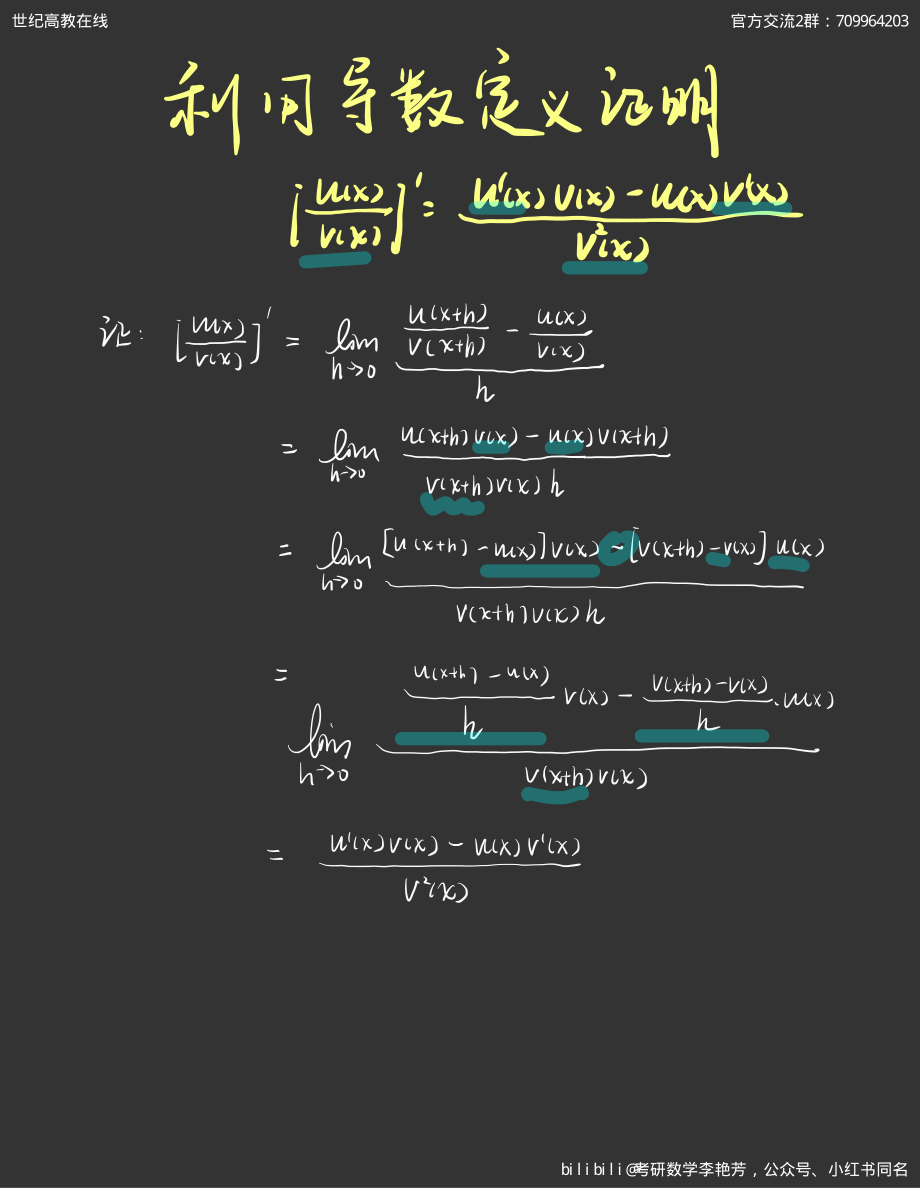 世纪高教在线 官方交流2群：709964203
利用导数定义证明
[u(x)/v(x)]' = (u'(x)v(x) - u(x)v'(x))/v²(x)
证: [u(x)/v(x)]' = lim h→0 (u(x+h)/v(x+h) - u(x)/v(x))/h
= lim h→0 (u(x+h)v(x) - u(x)v(x+h))/(v(x+h)v(x)h)
= lim h→0 ([u(x+h) - u(x)]v(x) - [v(x+h) - v(x)]u(x))/(v(x+h)v(x)h)
= lim h→0 ((u(x+h) - u(x))/h v(x) - (v(x+h) - v(x))/h · u(x))/(v(x+h)v(x))
= (u'(x)v(x) - u(x)v'(x))/v²(x)
bilibili@考研数学李艳芳，公众号、小红书同名